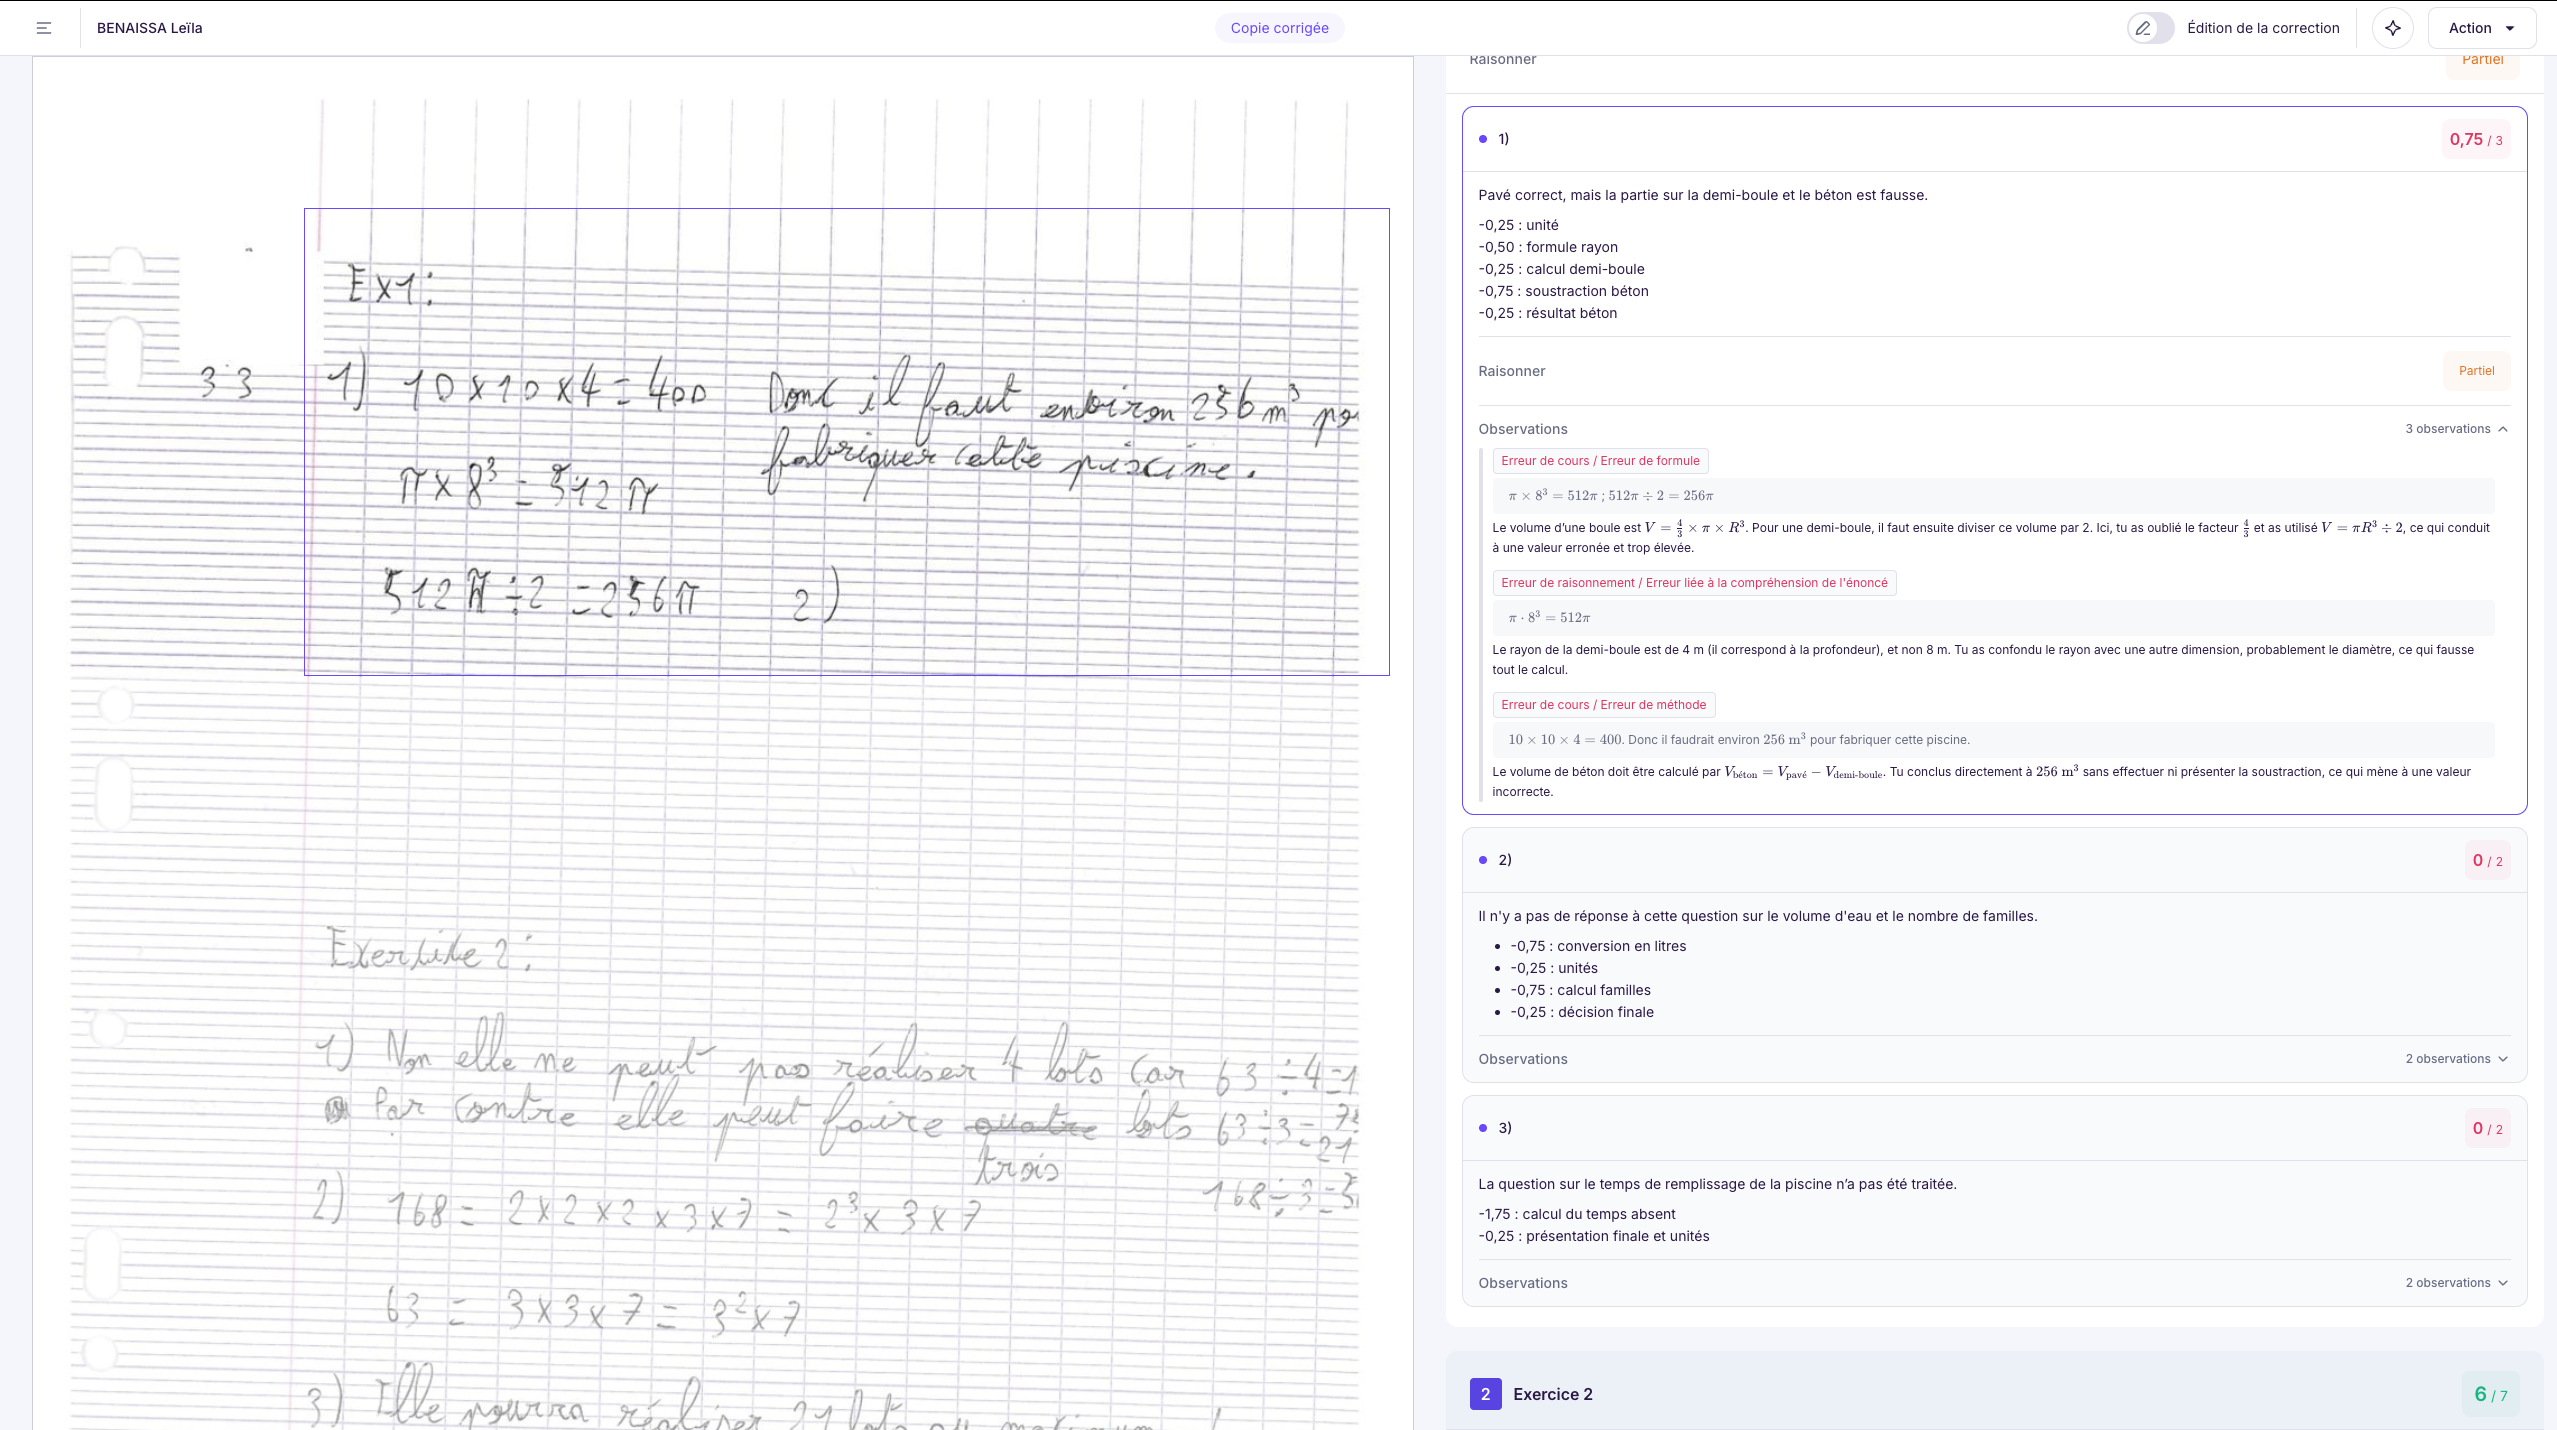 BENAISSA Leïla
Copie corrigée
Édition de la correction
Action
Ex1:
3 3
1) 10 x 10 x 4 = 400
Donc il faut environ 256 m³
fabriquer cette piscine.
π x 8³ = 512 π
512 π ÷ 2 = 256 π
2)
Exercice 2 :
1) Non elle ne peut pas réaliser 4 lots car 63 ÷ 4 = 1
Par contre elle peut faire quatre lots 63 ÷ 3 =
trois
21
168 ÷ 3 = 5
2) 168 = 2 x 2 x 2 x 3 x 7 = 2³ x 3 x 7
63 = 3 x 3 x 7 = 3² x 7
3) Elle pourra réaliser 21 lots au maximum
Raisonner
Partiel
1)
0,75 / 3
Pavé correct, mais la partie sur la demi-boule et le béton est fausse.
-0,25 : unité
-0,50 : formule rayon
-0,25 : calcul demi-boule
-0,75 : soustraction béton
-0,25 : résultat béton
Raisonner
Partiel
Observations
3 observations
Erreur de cours / Erreur de formule
π × 8³ = 512π ; 512π ÷ 2 = 256π
Le volume d’une boule est V = 4/3 × π × R³. Pour une demi-boule, il faut ensuite diviser ce volume par 2. Ici, tu as oublié le facteur 4/3 et as utilisé V = πR³ ÷ 2, ce qui conduit
à une valeur erronée et trop élevée.
Erreur de raisonnement / Erreur liée à la compréhension de l'énoncé
π · 8³ = 512π
Le rayon de la demi-boule est de 4 m (il correspond à la profondeur), et non 8 m. Tu as confondu le rayon avec une autre dimension, probablement le diamètre, ce qui fausse
tout le calcul.
Erreur de cours / Erreur de méthode
10 × 10 × 4 = 400. Donc il faudrait environ 256 m³ pour fabriquer cette piscine.
Le volume de béton doit être calculé par Vbéton = Vpavé − Vdemi-boule. Tu conclus directement à 256 m³ sans effectuer ni présenter la soustraction, ce qui mène à une valeur
incorrecte.
2)
0 / 2
Il n'y a pas de réponse à cette question sur le volume d'eau et le nombre de familles.
-0,75 : conversion en litres
-0,25 : unités
-0,75 : calcul familles
-0,25 : décision finale
Observations
2 observations
3)
0 / 2
La question sur le temps de remplissage de la piscine n’a pas été traitée.
-1,75 : calcul du temps absent
-0,25 : présentation finale et unités
Observations
2 observations
2
Exercice 2
6 / 7